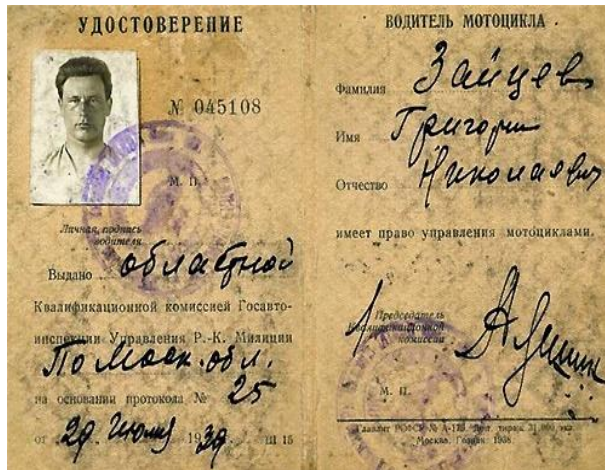 УДОСТОВЕРЕНИЕ
№ 045108
М. П.
Личная подпись
водителя
Выдано областной
Квалификационной комиссией Госавто-
инспекции Управления Р.-К. Милиции
По Моск. обл.
на основании протокола № 25
от 29 июля 1939 г. Ш 15
ВОДИТЕЛЬ МОТОЦИКЛА
Фамилия Зайцев
Имя Григорий
Отчество Николаевич
имеет право управления мотоциклами.
Председатель
Квалификационной
комиссии
М. П.
Главлит РСФСР № А-173. тираж 31.000 экз.
Москва. Гознак. 1938.